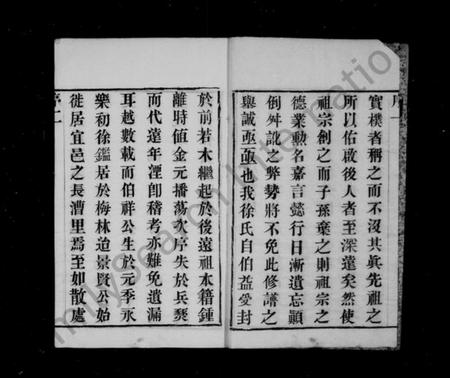 實樸者稱之而不沒其眞先祖之
所以佑啟後人者至深遠矣然使
祖宗創之而子孫棄之則祖宗之
德業勳名嘉言懿行日漸遺忘顚
倒舛訛之弊勢將不免此修譜之
舉誠亟亟也我徐氏自伯益受封
於前若木繼起於後遠祖本籍鍾
離時値金元播蕩亦序失於兵燹
而代遠年湮卽稽考亦難免遺漏
耳越數載而伯祥公生於元季永
樂初徐鑑居於梅林迨景賢公始
徙居宜邑之長漕里焉至如散處
序二
FamilySearch International